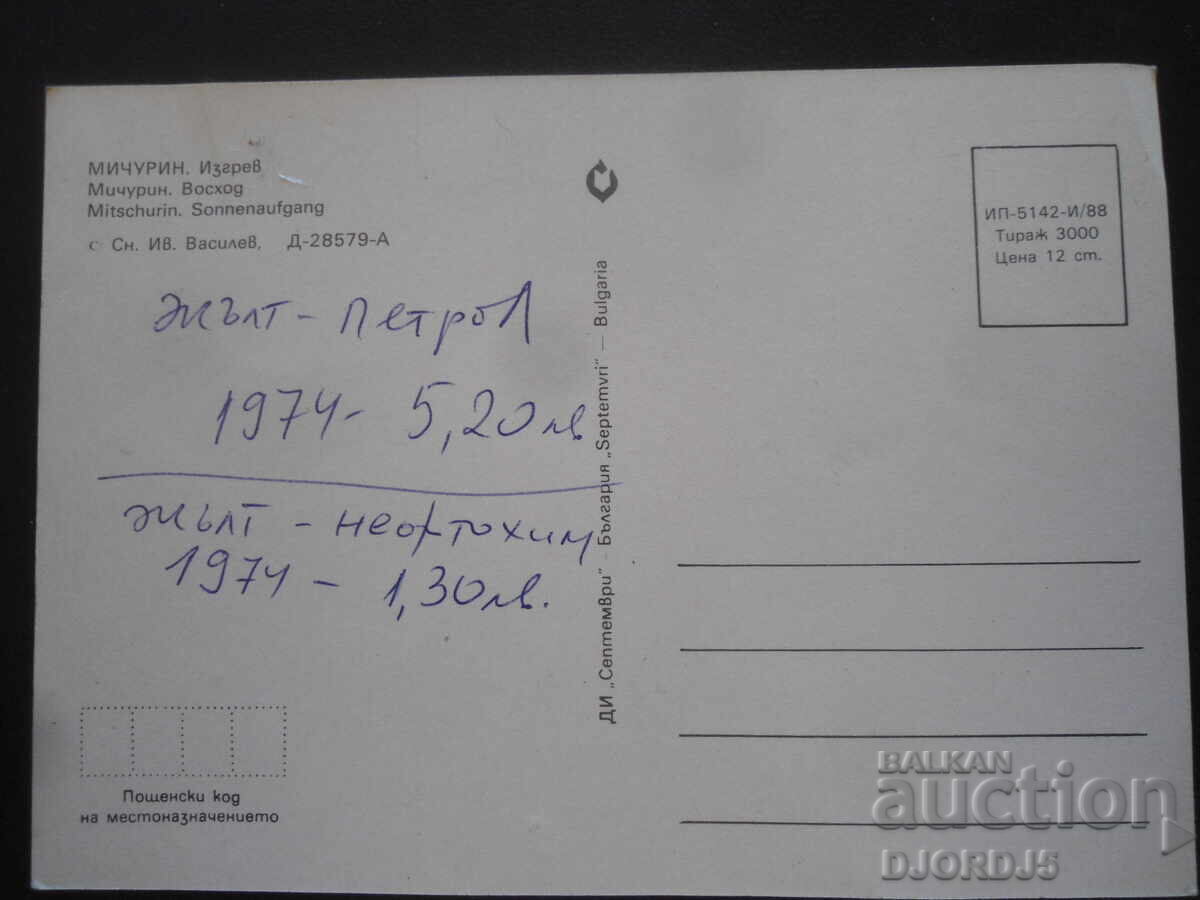 МИЧУРИН. Изгрев
Мичурин. Восход
Mitschurin. Sonnenaufgang
с Сн. Ив. Василев, Д-28579-А
жълт - Петрол
1974 - 5,20 лв
жълт - нефтохим
1974 - 1,30 лв.
Пощенски код
на местоназначението
ДИ „Септември" - България „Septemvri" — Bulgaria
ИП-5142-И/88
Тираж 3000
Цена 12 ст.
BALKAN
auction
DJORDJ5